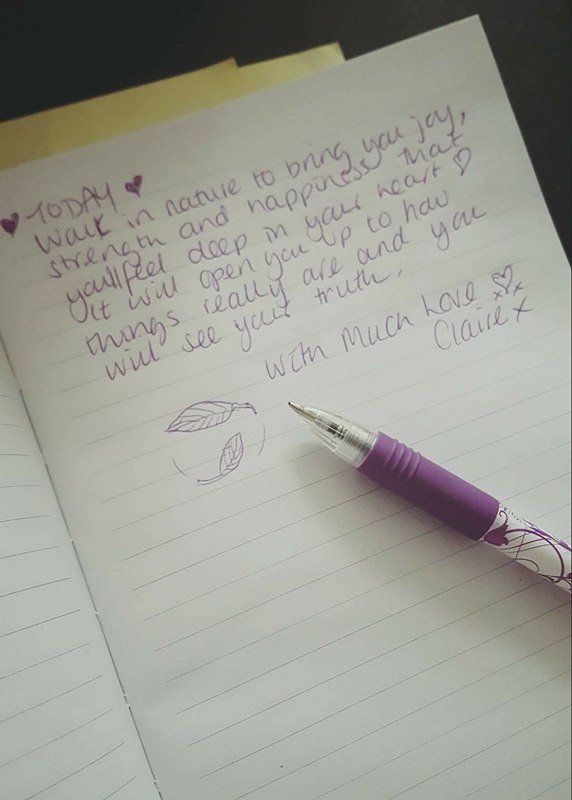 ♥ TODAY ♥
Walk in nature to bring you joy,
strength and happiness that
you'll feel deep in your heart ♡
it will open you up to how
things really are and you
will see your truth.
With Much Love ♡
Claire xxx